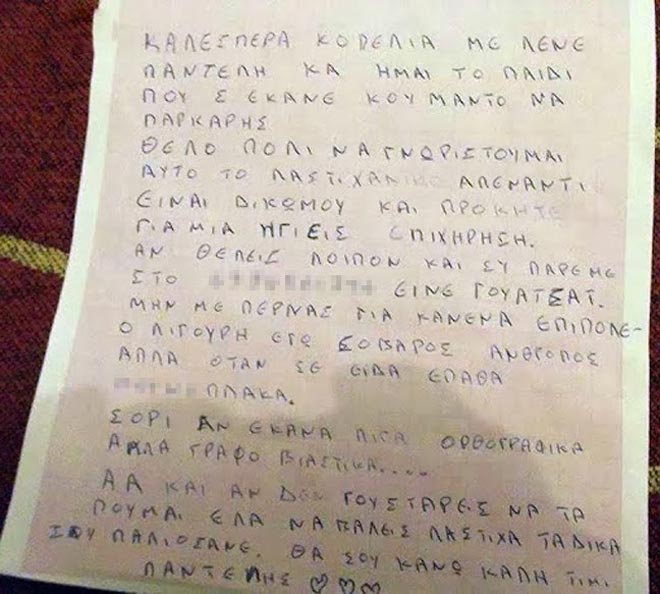 ΚΑΛΕΣΠΕΡΑ ΚΟΠΕΛΙΑ ΜΕ ΛΕΝΕ
ΠΑΝΤΕΛΗ ΚΑ ΗΜΑΙ ΤΟ ΠΑΙΔΙ
ΠΟΥ Σ ΕΚΑΝΕ ΚΟΥΜΑΝΤΟ ΝΑ
ΠΑΡΚΑΡΗΣ
ΘΕΛΟ ΠΟΛΙ ΝΑ ΓΝΩΡΙΣΤΟΥΜΑΙ
ΑΥΤΟ ΤΟ ΛΑΣΤΙΧΑΔΙΚΟ ΑΠΕΝΑΝΤΙ
ΕΙΝΑΙ ΔΙΚΩΜΟΥ ΚΑΙ ΠΡΟΚΗΤΕ
ΓΙΑ ΜΙΑ ΗΓΙΕΙΣ ΕΠΙΧΗΡΗΣΗ.
ΑΝ ΘΕΛΕΙΣ ΛΟΙΠΟΝ ΚΑΙ ΣΥ ΠΑΡΕ ΜΕ
ΣΤΟ ΕΙΝΕ ΓΟΥΑΤΣΑΤ.
ΜΗΝ ΜΕ ΠΕΡΝΑΣ ΓΙΑ ΚΑΝΕΝΑ ΕΠΙΠΟΛΕ-
Ο ΛΙΓΟΥΡΗ ΕΓΩ ΣΟΒΑΡΟΣ ΑΝΘΡΟΠΟΣ
ΑΛΛΑ ΟΤΑΝ ΣΕ ΕΙΔΑ ΕΠΑΘΑ
ΠΛΑΚΑ.
ΣΟΡΙ ΑΝ ΕΚΑΝΑ ΛΙΓΑ ΟΡΘΟΓΡΑΦΙΚΑ
ΑΛΛΑ ΓΡΑΦΟ ΒΙΑΣΤΙΚΑ.....
ΑΑ ΚΑΙ ΑΝ ΔΕΝ ΓΟΥΣΤΑΡΕΙΣ ΝΑ ΤΑ
ΠΟΥΜΑΙ ΕΛΑ ΝΑ ΒΑΛΕΙΣ ΛΑΣΤΙΧΑ ΤΑ ΔΙΚΑ
ΣΟΥ ΠΑΛΙΟΣΑΝΕ. ΘΑ ΣΟΥ ΚΑΝΩ ΚΑΛΗ ΤΙΜΙ.
ΠΑΝΤΕΛΗΣ ♡♡♡